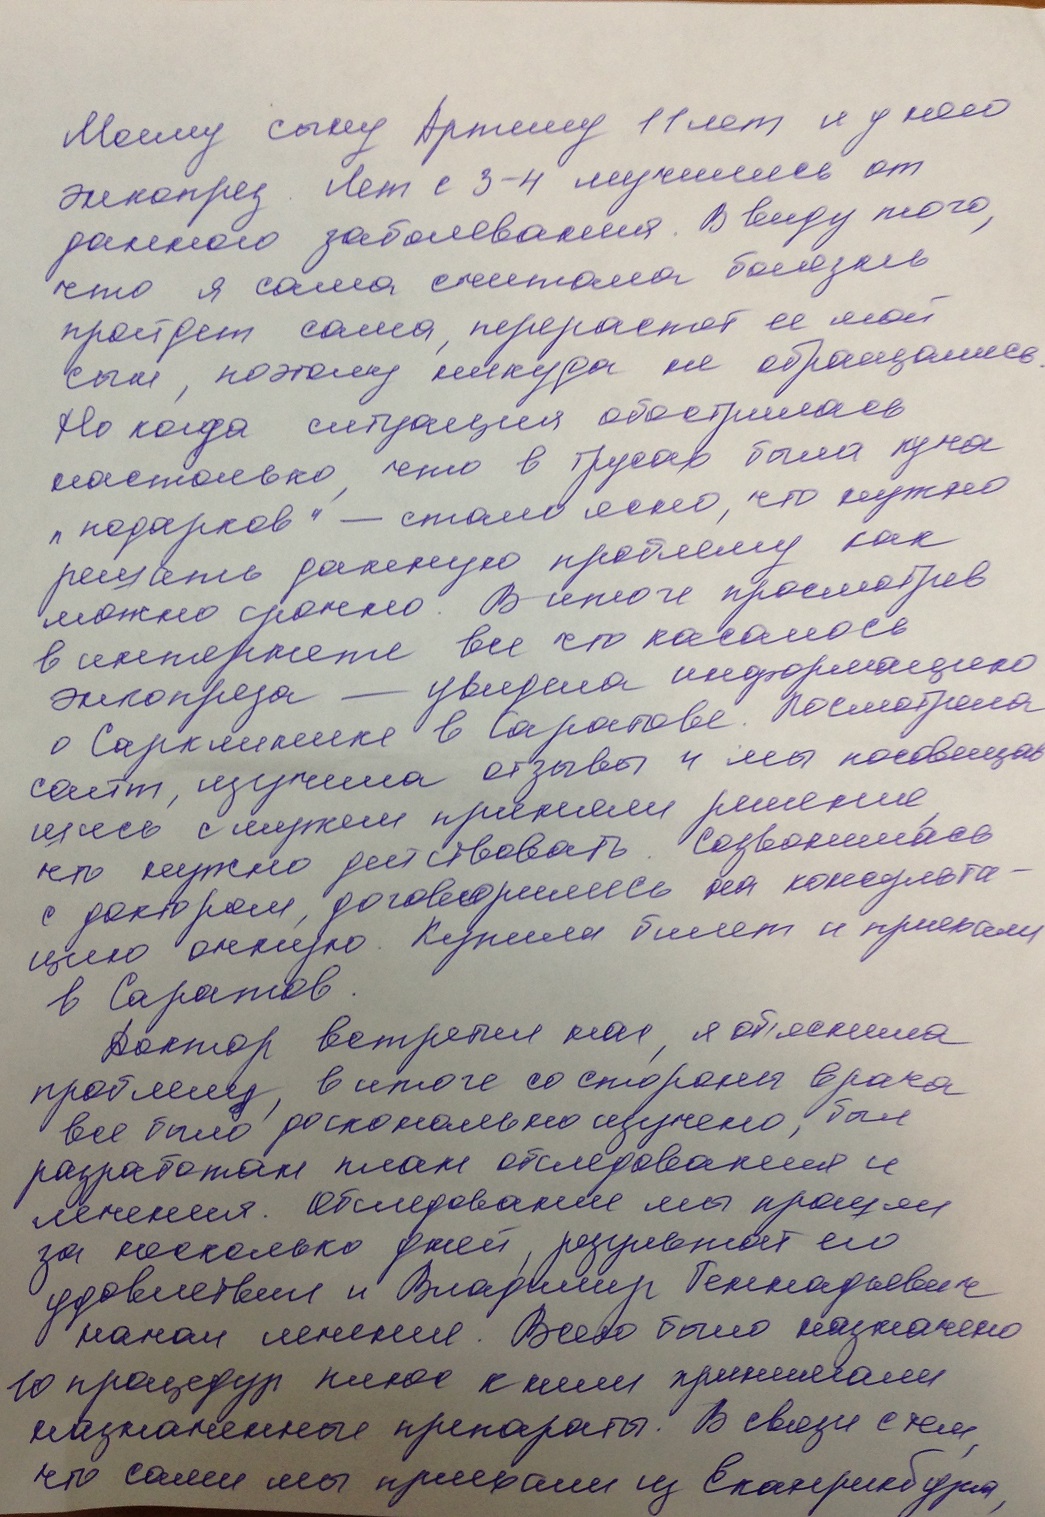 Моему сыну Артему 11 лет и у него
энкопрез. Лет с 3-4 мучились от
данного заболевания. В виду того,
что я сама считала болезнь
пройдет сама, перерастет ее мой
сын, поэтому никуда не обращались.
Но когда ситуация обострилась
настолько, что в трусах была куча
„подарков" — стало ясно, что нужно
решать данную проблему как
можно срочно. В итоге просмотрев
в интернете все что касалось
энкопреза — увидела информацию
о Сарклинике в Саратове. Посмотрела
сайт, изучила отзывы и мы посовещав
шись с мужем приняли решение,
что нужно действовать. Созвонилась
с доктором, договорились на консульта-
цию очную. Купили билет и приехали
в Саратов.
Доктор встретил нас, я объяснила
проблему, в итоге со стороны врача
все было досконально изучено, был
разработан план обследования и
лечения. Обследование мы прошли
за несколько дней, результат его
удовлетвил и Владимир Геннадьевич
начал лечение. Всего было назначено
10 процедур плюс к ним принимали
назначенные препараты. В связи с тем,
что сами мы приехали из Екатеринбурга,